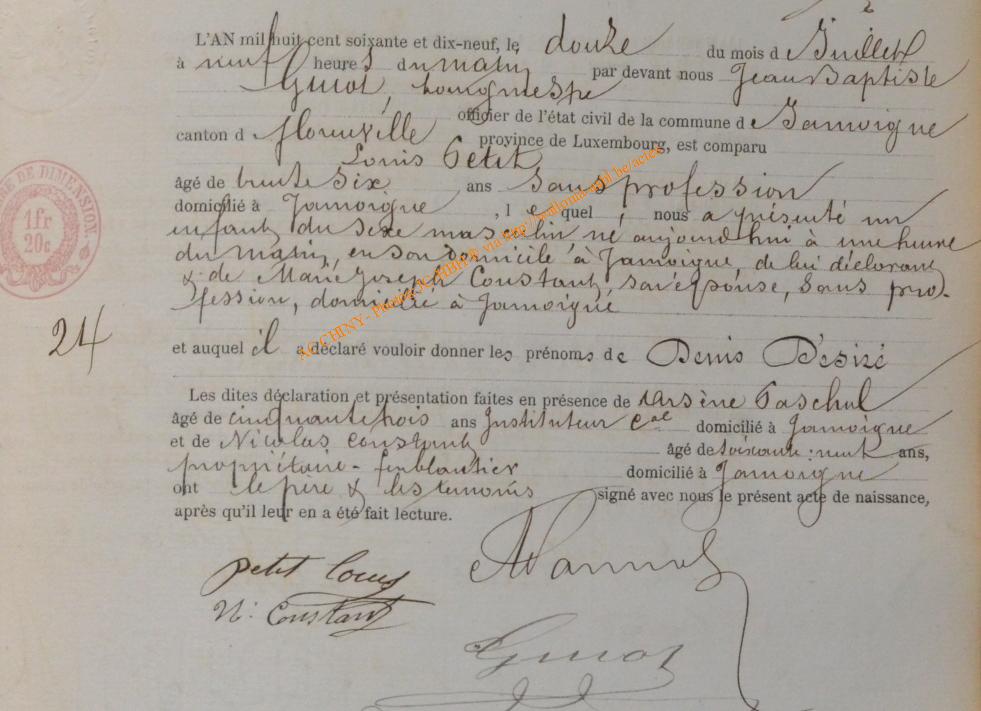 L'AN mil huit cent soixante et dix-neuf, le douze du mois de Juillet
à neuf heures du matin par devant nous Jean Baptiste
Guiot, bourgmestre
officier de l'état civil de la commune de Jamoigne
canton de Florenville province de Luxembourg, est comparu
Louis Petit
âgé de trente six ans sans profession
domicilié à Jamoigne, lequel, nous a présenté un
enfant du sexe masculin né aujourd'hui à une heure
du matin, en son domicile à Jamoigne, de lui déclarant
& de Marie Joseph Constant, son épouse, sans pro-
fession, domiciliée à Jamoigne
24
et auquel il a déclaré vouloir donner les prénoms de Denis Désiré
Les dites déclaration et présentation faites en présence de Arsène
âgé de cinquante trois ans Instituteur Cal domicilié à Jamoigne
et de Nicolas Constant âgé de soixante-neuf ans,
propriétaire - ferblantier domicilié à Jamoigne
ont le père & les témoins signé avec nous le présent acte de naissance,
après qu'il leur en a été fait lecture.
petit Louis
N. Constant
Guiot
DE DIMENSION
1fr
20c